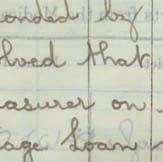 onded by
olved that
easurer on
age Loan